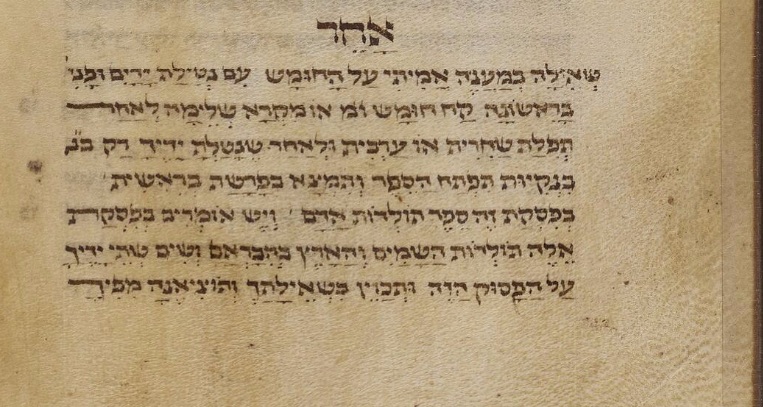 אַחֵר
שְׁאֵילָה בְּמַעֲנֶה אֲמִיתִי עַל הַחוּמָש עִם נְטִילַת יָדַיִם וּבָנִי
בָּרִאשׁוֹנָה קַח חוּמָש או מקרא שְׁלֵימָה לְאַחַר
תְּפִלַּת שַׁחֲרִית או עַרְבִית וּלְאַחַר שֶׁנָטַלְתָּ יָדֶיךָ דַק
בִּנְקִיּוּת תִּפְתַּח הַסֵפֶר וְתִמְצָא בְּפָרָשַׁת בְּרֵאשִׁית
בְּפִסְקַת זֶה סֵפֶר תּוֹלְדוֹת אָדָם וְיֵשׁ אוֹמְרִים בְּפִסְקַת
אֵלֶּה תוֹלְדוֹת הַשָּׁמַיִם וְהָאָרֶץ בְּהִבָּרְאָם וְשִׂים שְׁתֵּי יָדֶיךָ
עַל הַפָּסוּק הַזֶּה וּתְכַוֵּין בִּשְׁאֵילָתְךָ וְתוֹצִיאֶנָּה מִפִּיךָ